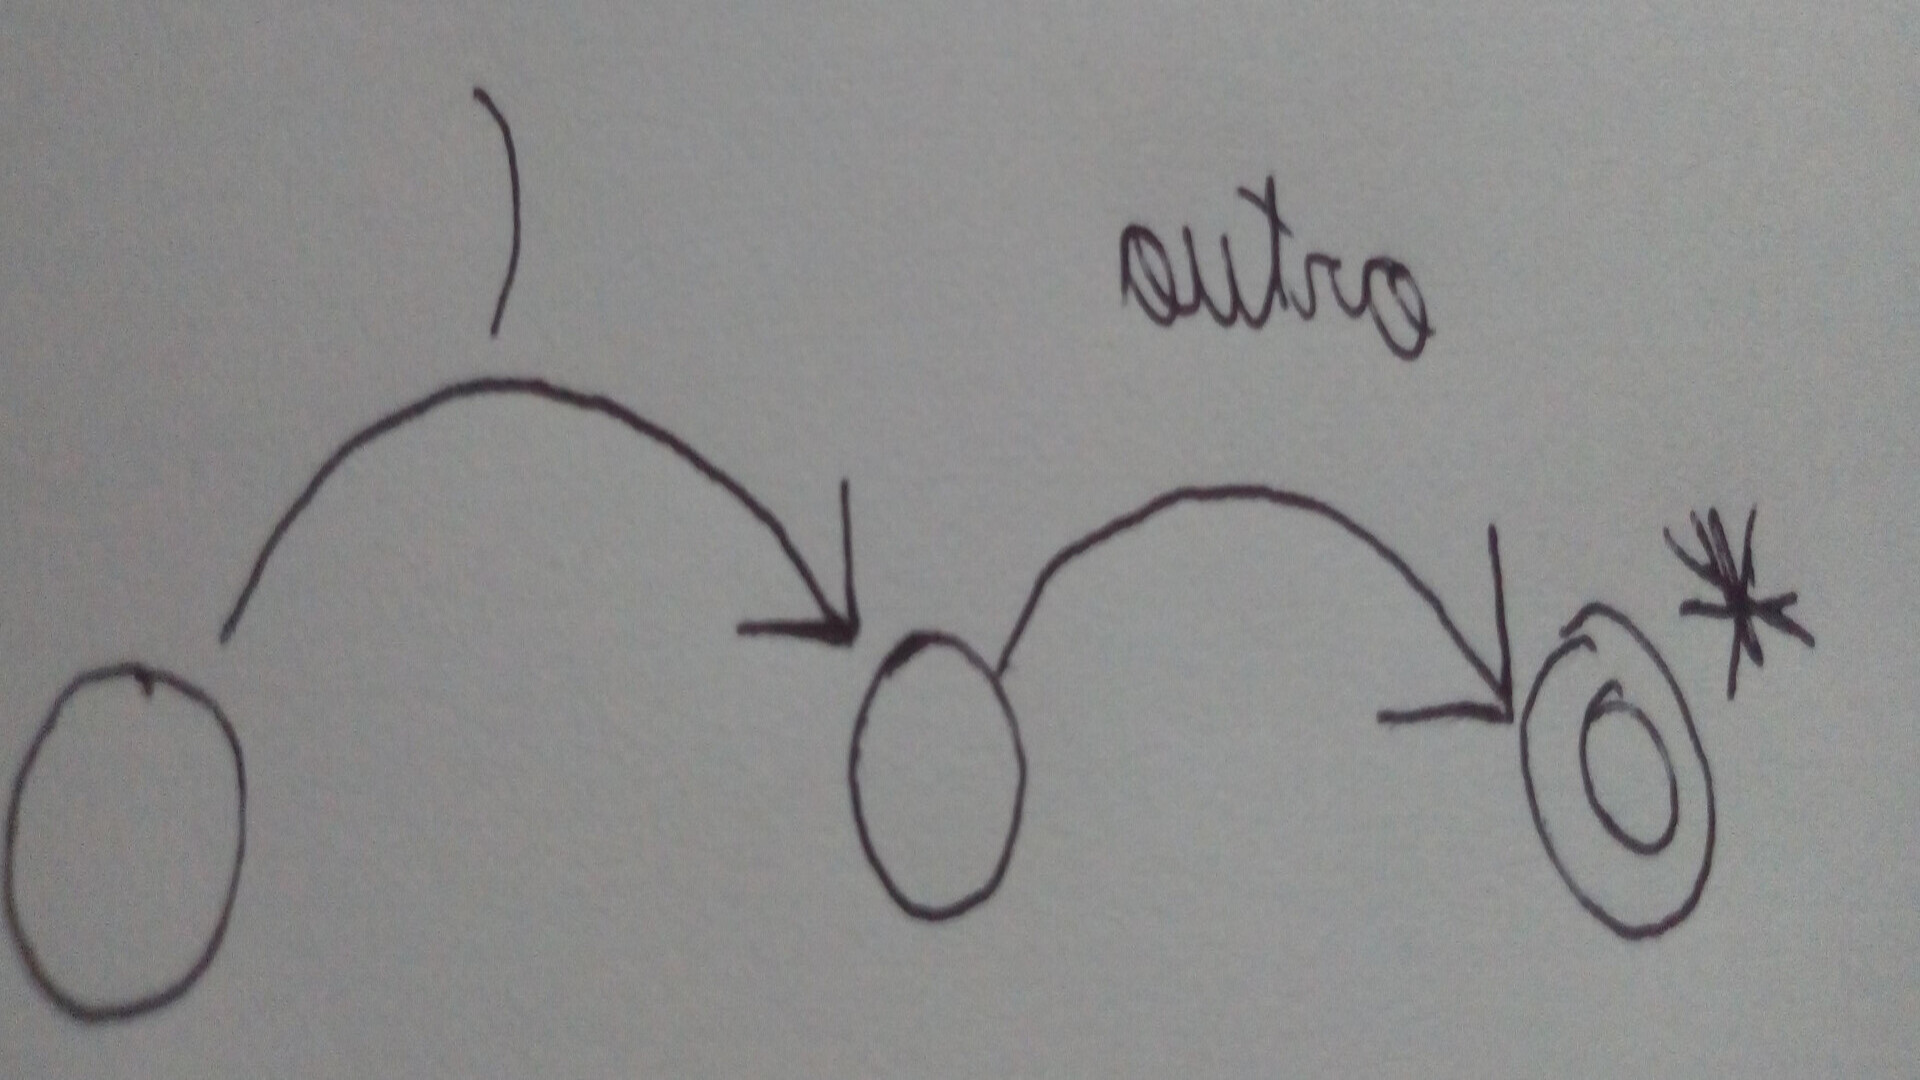 )
outro
*